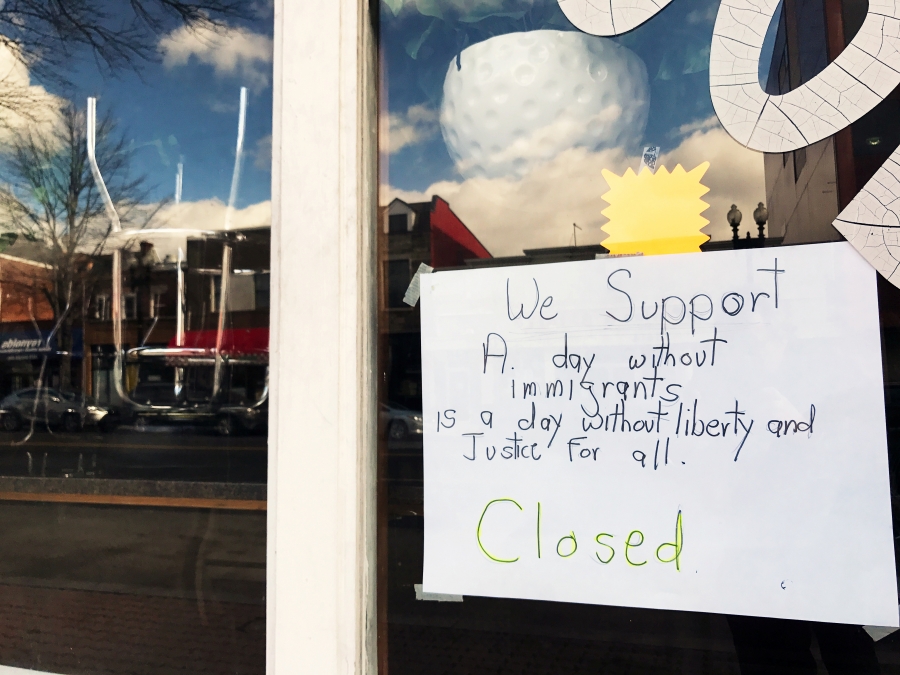 We Support
A. day without
immigrants
is a day without liberty and
Justice For all.
Closed.